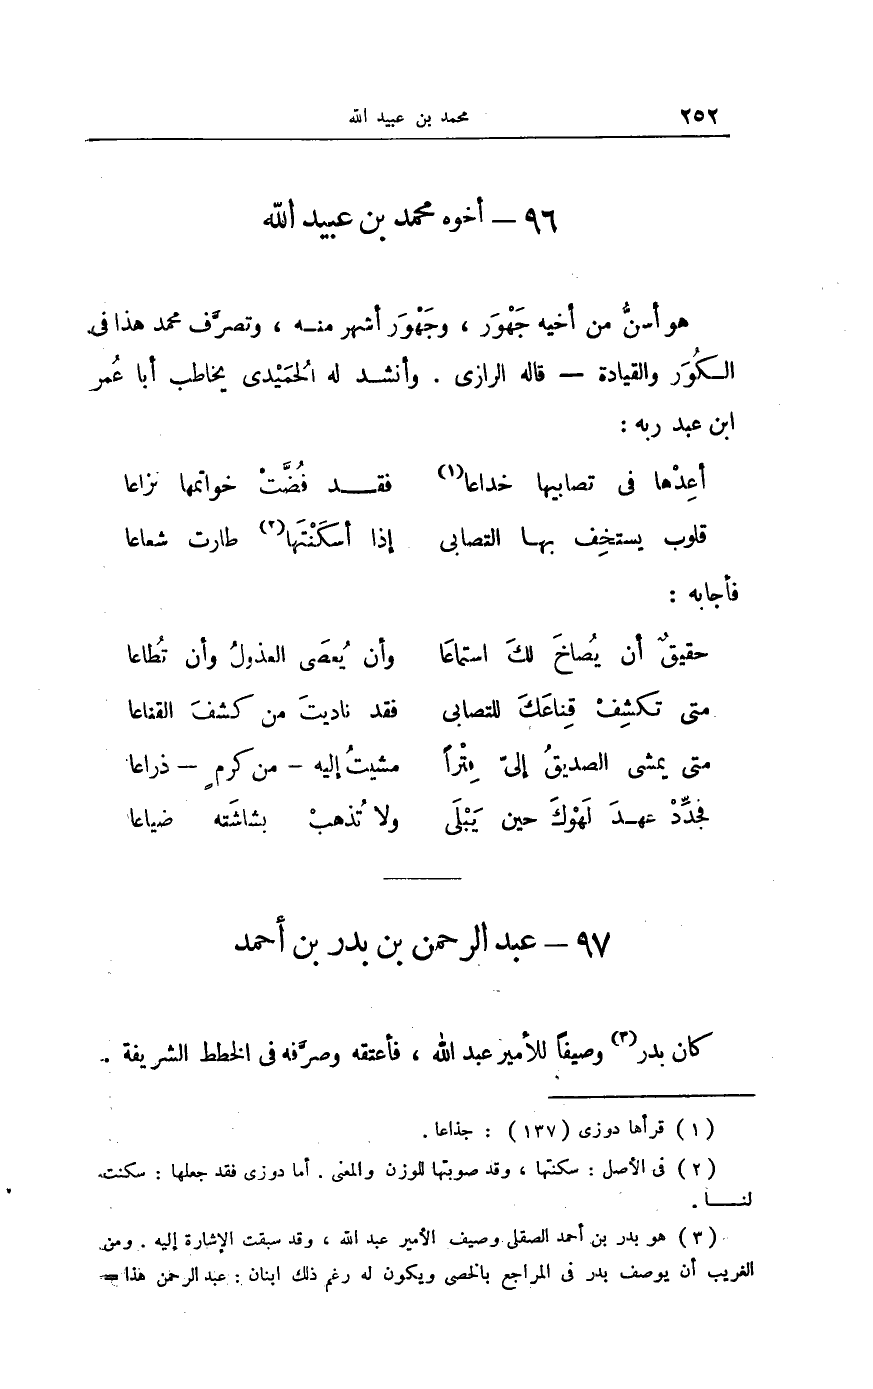 ٢٥٢ محمد بن عبيد الله
٩٦ — أخوه محمد بن عبيد الله
هو أسنُّ من أخيه جَهْوَر ، وجَهْوَر أشهر منه ، وتصرَّف محمد هذا فى
الكُوَر والقيادة — قاله الرازى . وأنشد له الحُمَيْدى يخاطب أبا عُمر
ابن عبد ربه :
أعِدْها فى تصابيها خداعا(١) فقد فُضَّتْ خواتمها نزاعا
قلوب يستخِف بها التصابى إذا أسكَنْتَها(٢) طارت شعاعا
فأجابه :
حقيقٌ أن يُصاخَ لكَ استماعَا وأن يُعصَى العذولُ وأن تُطاعا
متى تكشِفْ قِناعَكَ للتصابى فقد ناديتَ من كشفَ القناعا
متى يمشى الصديقُ إلىّ فِتْراً مشيتُ إليه – من كرمٍ – ذراعا
فجدِّدْ عهدَ لَهْوكَ حين يَبْلَى ولا تُذهبْ بشاشَته ضياعا
٩٧ — عبد الرحمن بن بدر بن أحمد
كان بدر(٣) وصيفاً للأمير عبد الله ، فأعتقه وصرَّفه فى الخطط الشريفة .
(١) قرأها دوزى (١٣٧) : جذاعا .
(٢) فى الأصل : سكنتها ، وقد صوبتها للوزن والمعنى . أما دوزى فقد جعلها : سكنت
لنا .
(٣) هو بدر بن أحمد الصقلى وصيف الأمير عبد الله ، وقد سبقت الإشارة إليه . ومن
الغريب أن يوصف بدر فى المراجع بالخصى ويكون له رغم ذلك ابنان : عبد الرحمن هذا =